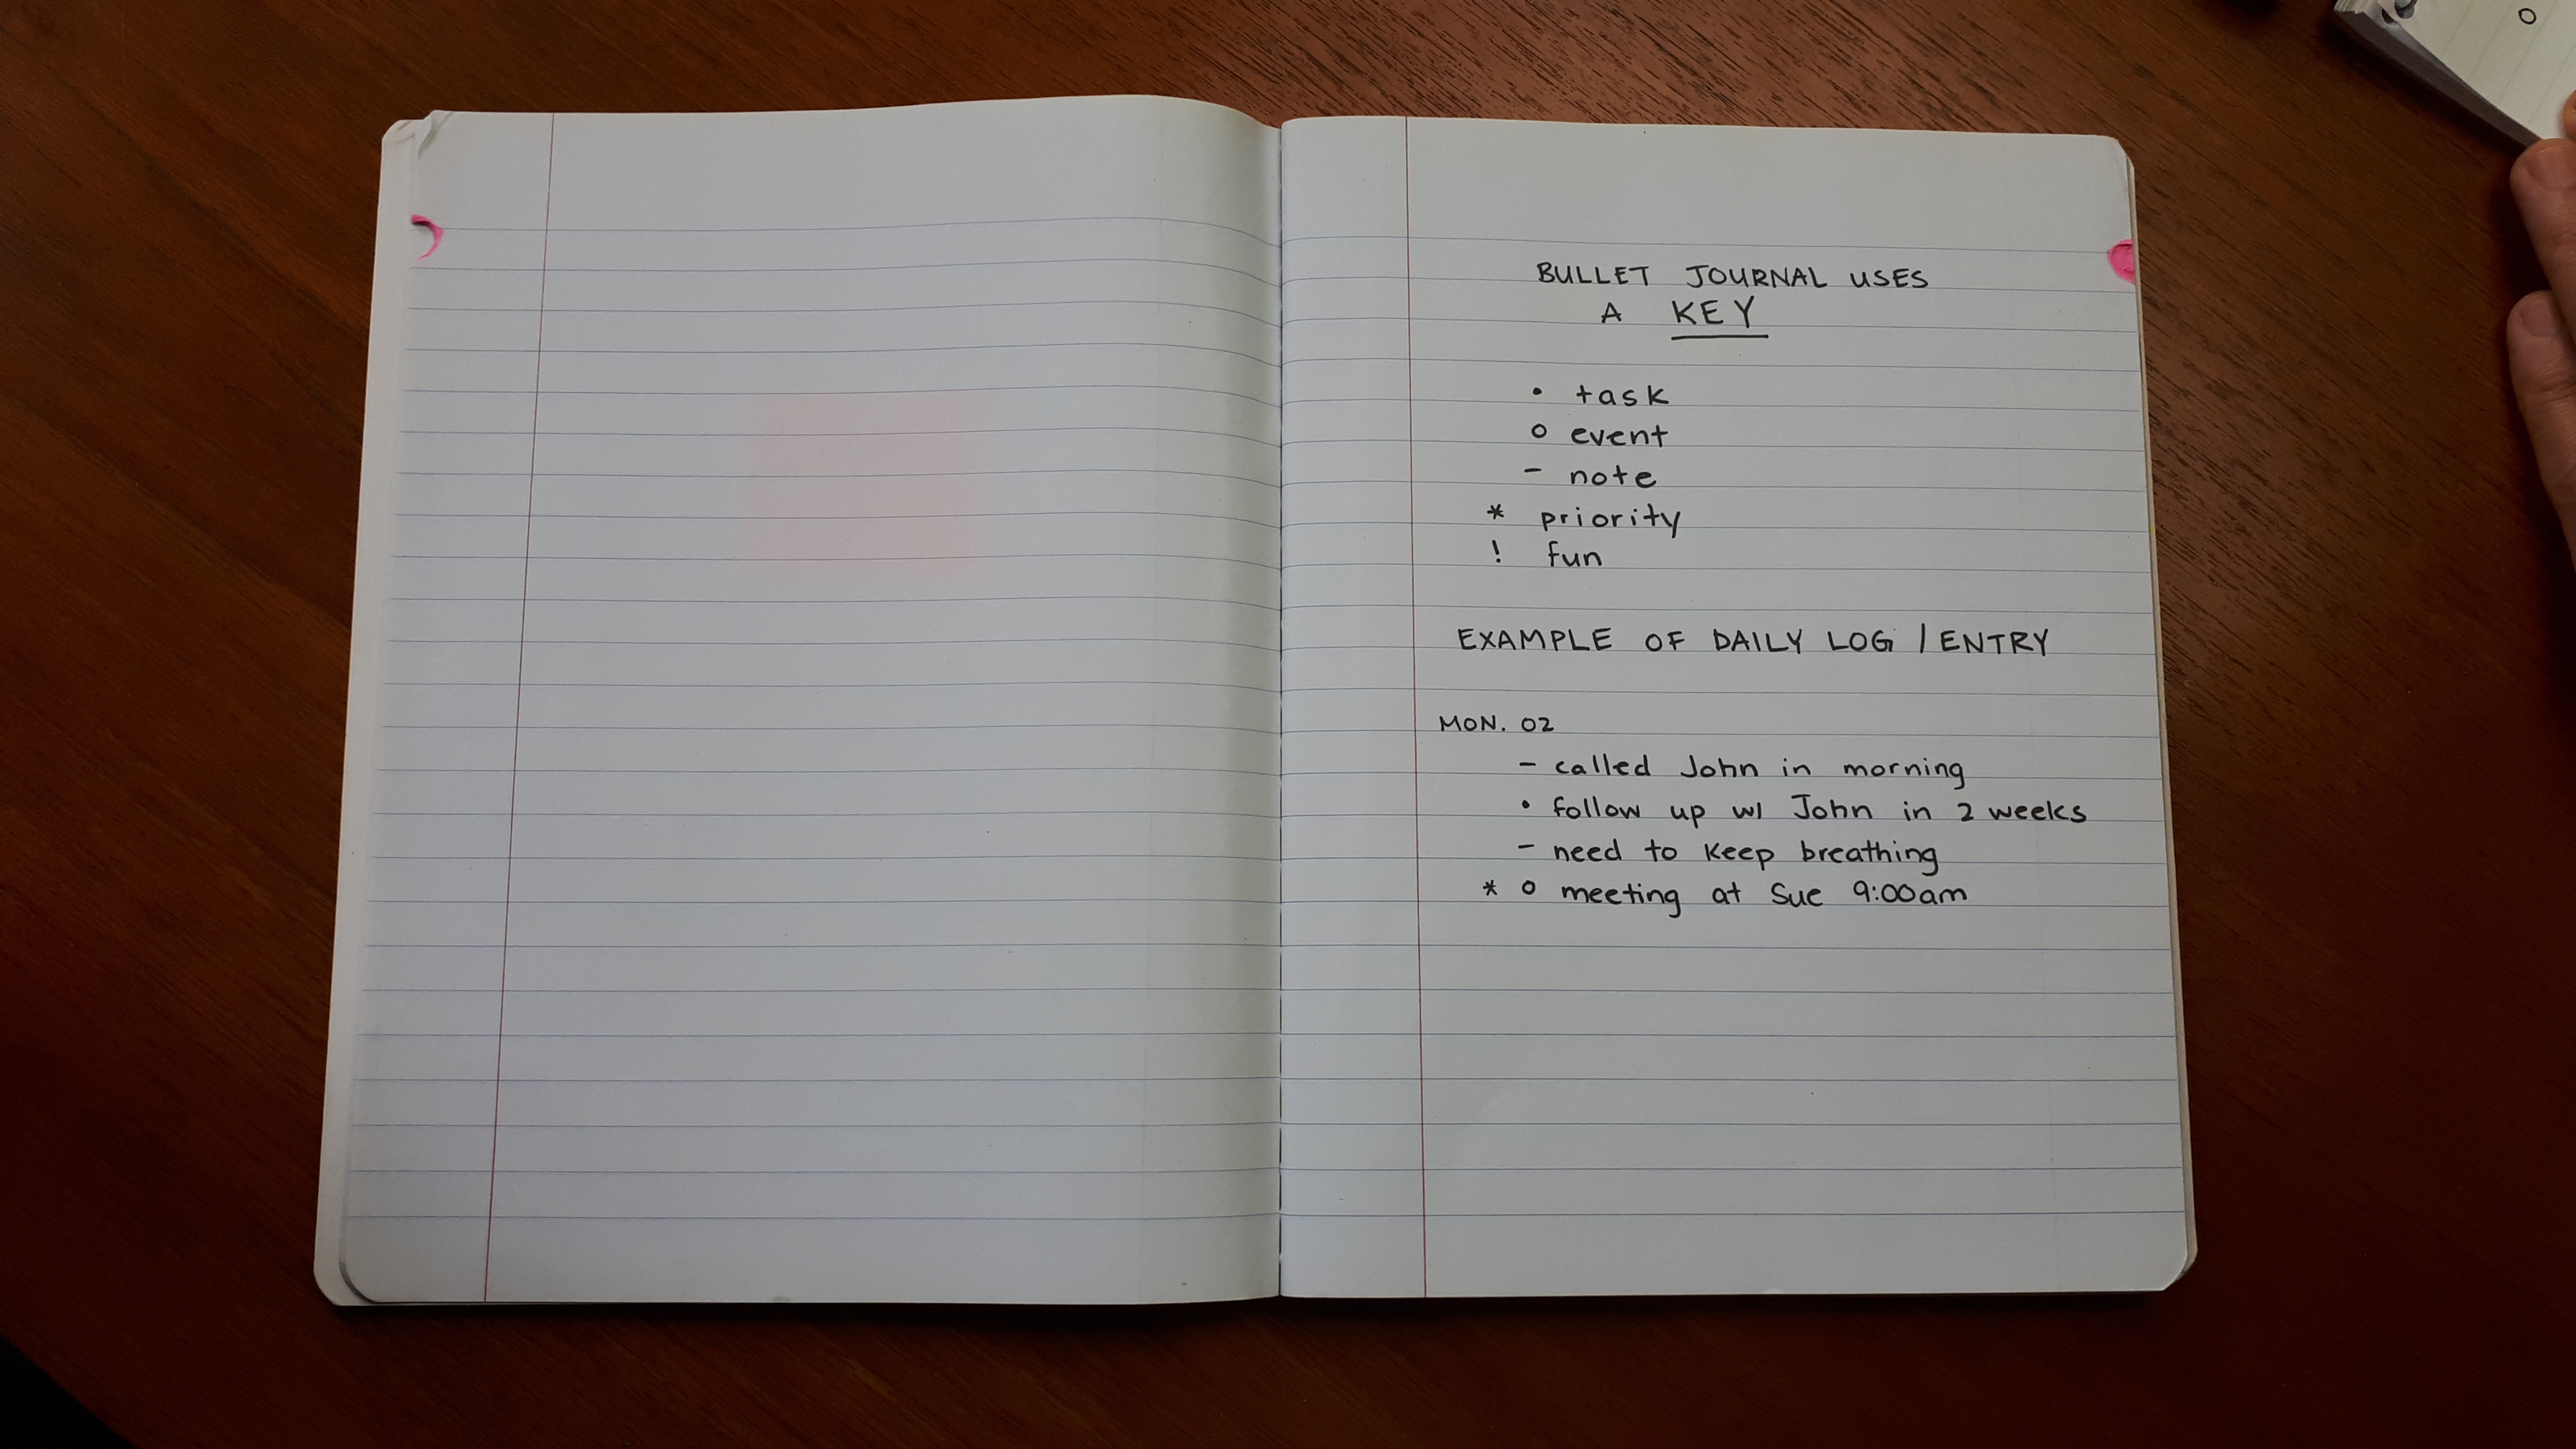 BULLET JOURNAL USES
A KEY
• task
o event
- note
* priority
! fun
EXAMPLE OF DAILY LOG / ENTRY
MON. 02
- called John in morning
• follow up w/ John in 2 weeks
- need to keep breathing
* o meeting at Sue 9:00am